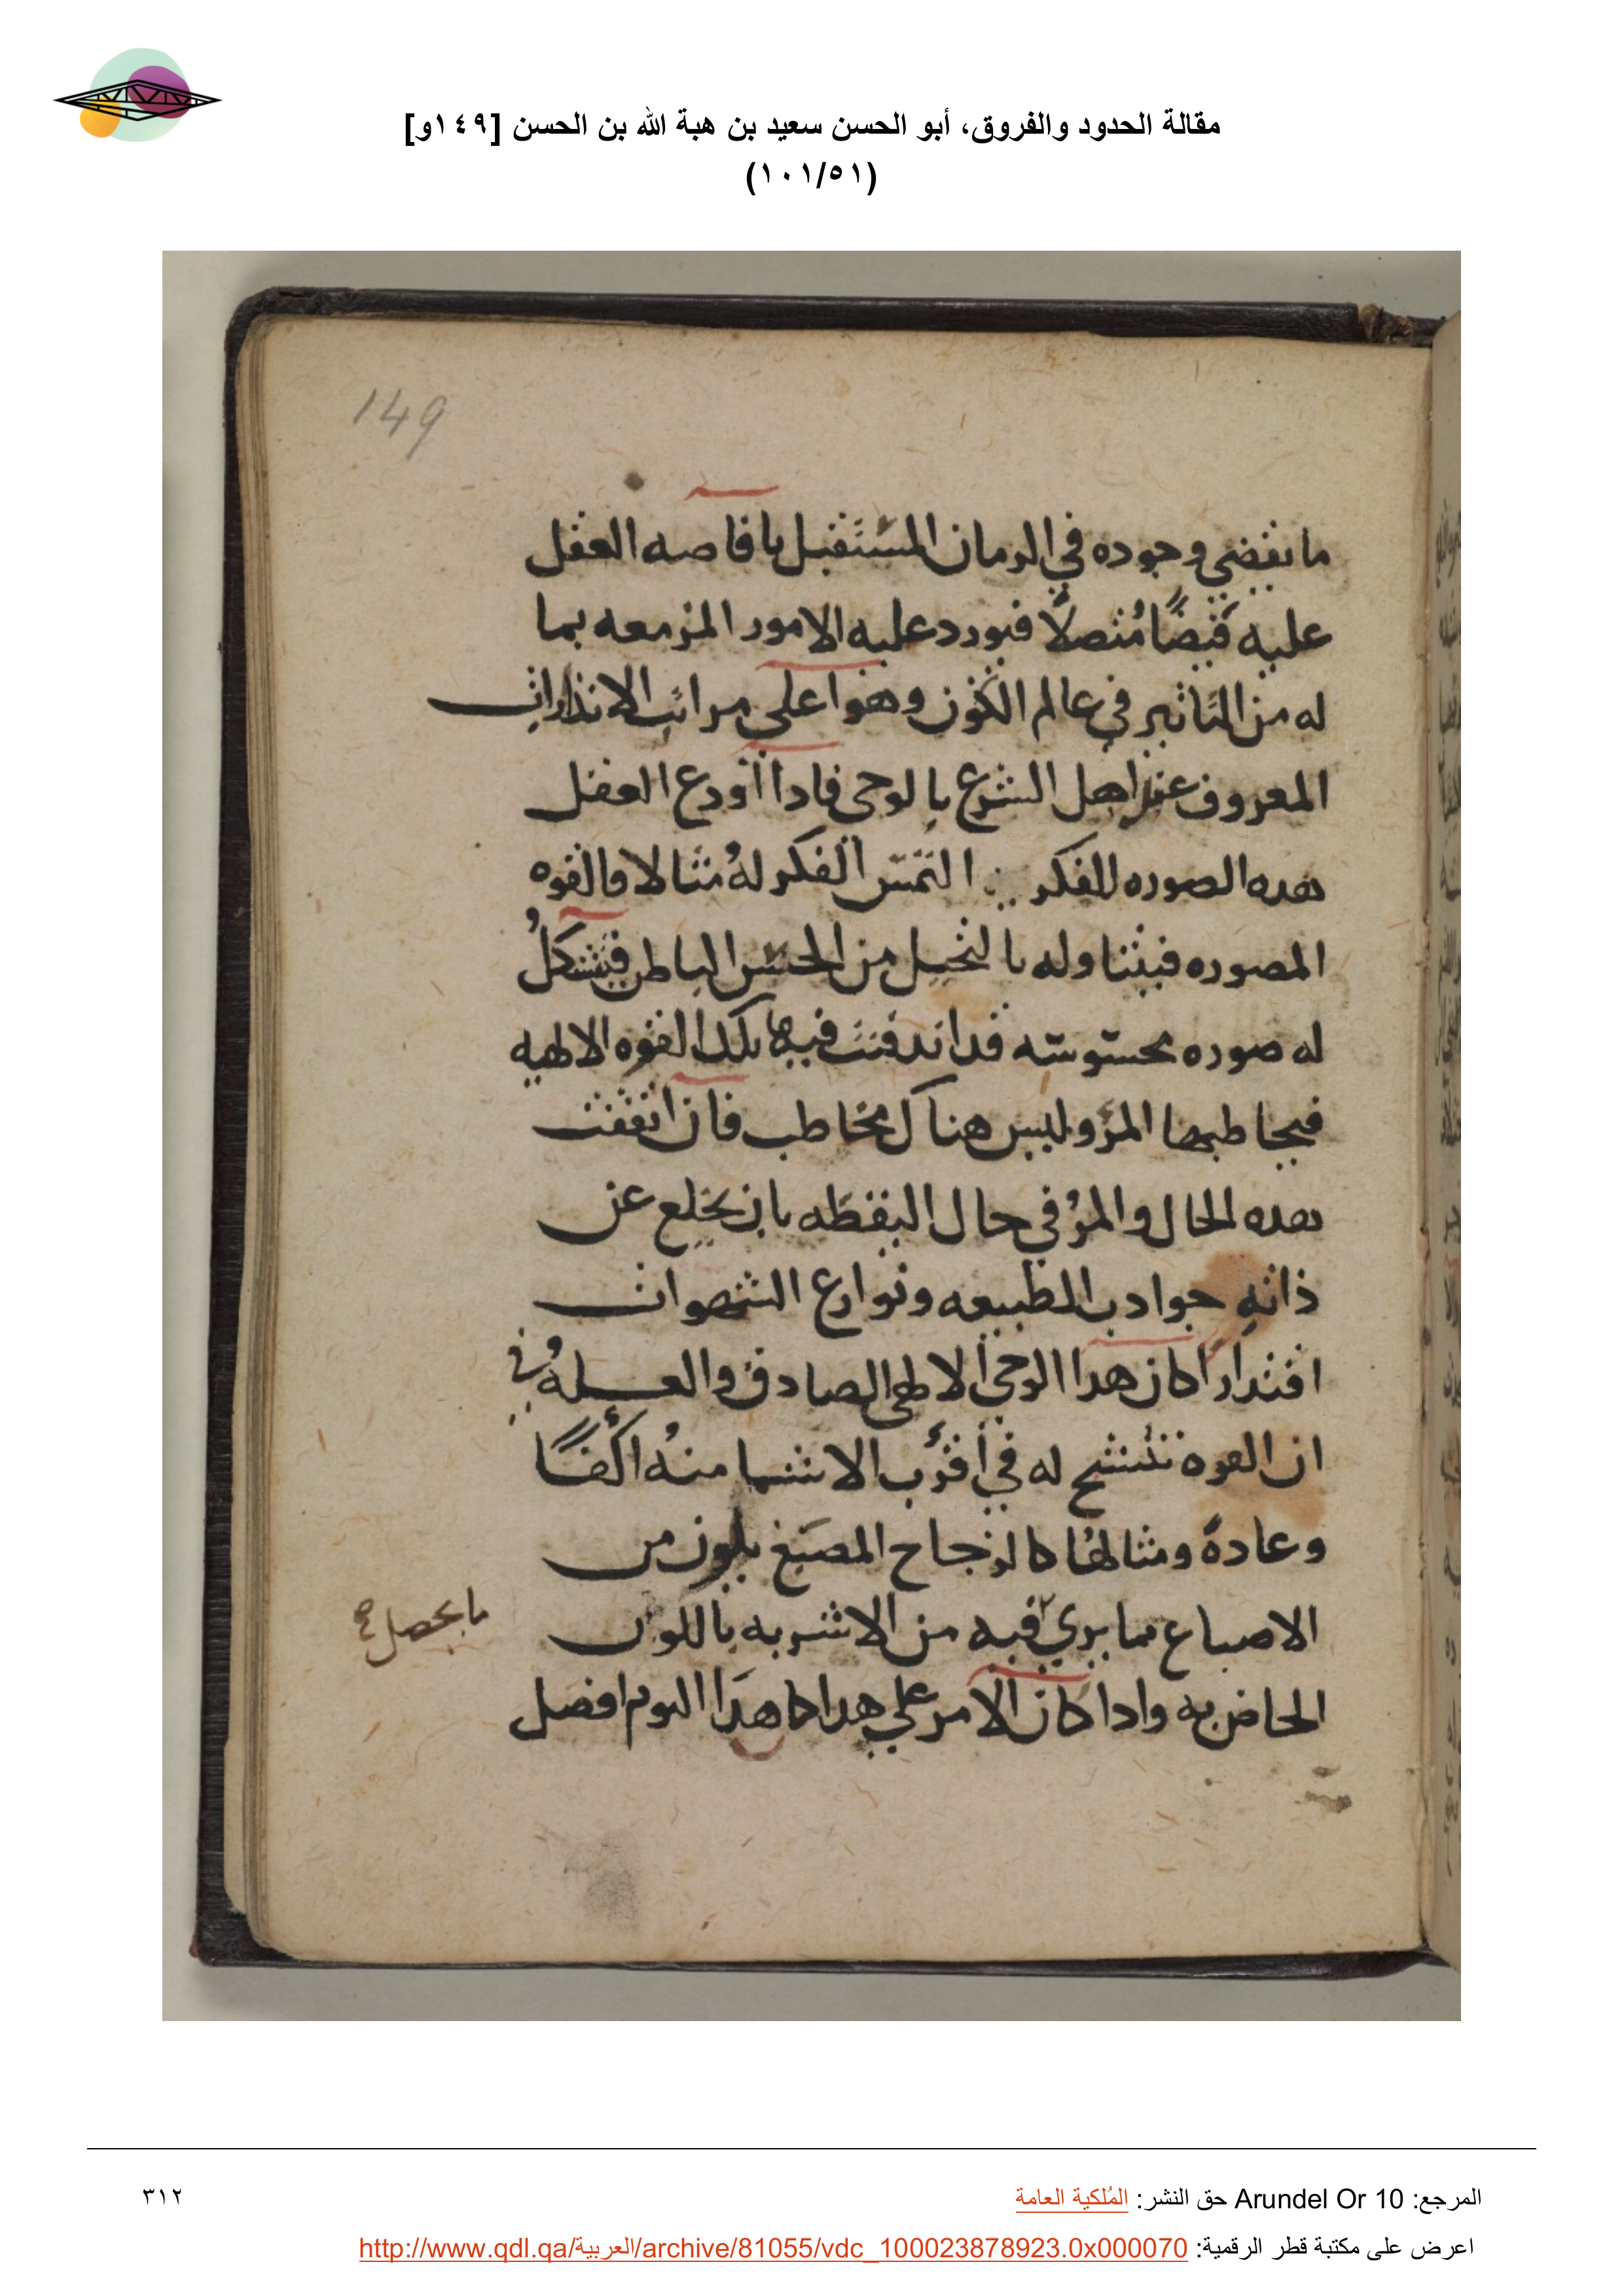 مقالة الحدود والفروق، أبو الحسن سعيد بن هبة الله بن الحسن [١٤٩و]
(١٠١/٥١)
149
ما يقضي وجوده في الزمان المستقبل بافاصه العقل
عليه فيضًا مُتصلاً فيورد عليه الامور المزمعه بما
له من التاثير في عالم الكون وهو اعلى مراتب الانذارات
المعروف عند اهل الشرع بالوحي فادا اودع العقل
هده الصوره للفكر التمس الفكر لهُ مثالا فالقوه
المصوره فيتناوله بالتخيل من الحس الباطن فيتشكلُ
له صوره محسوسه قد اندفنت فيها تلك القوه الالهيه
فيخاطبها المرؤ وليس هناك مخاطب فان اتفقت
هده الحال والمرؤ في حال اليقظه بان يخلع عن
ذاتهِ جوادب الطبيعه ونوازع الشهوات
اقتدارًا كان هدا الوحي الالهي الصادق والعله في
ان القوه تتشبح له في أقرب الاشيا منهُ اكفًا
وعادةً ومثالهُا كالزجاح المصبغ بلون من
الاصباع مما يري فيه من الاشربه باللون
ما يحصل
الحاضر به وادا كان الامر علي هدا كا هدا النوم افضل
المرجع: Arundel Or 10 حق النشر: المُلكية العامة
٣١٢
اعرض على مكتبة قطر الرقمية: http://www.qdl.qa/العربية/archive/81055/vdc_100023878923.0x000070